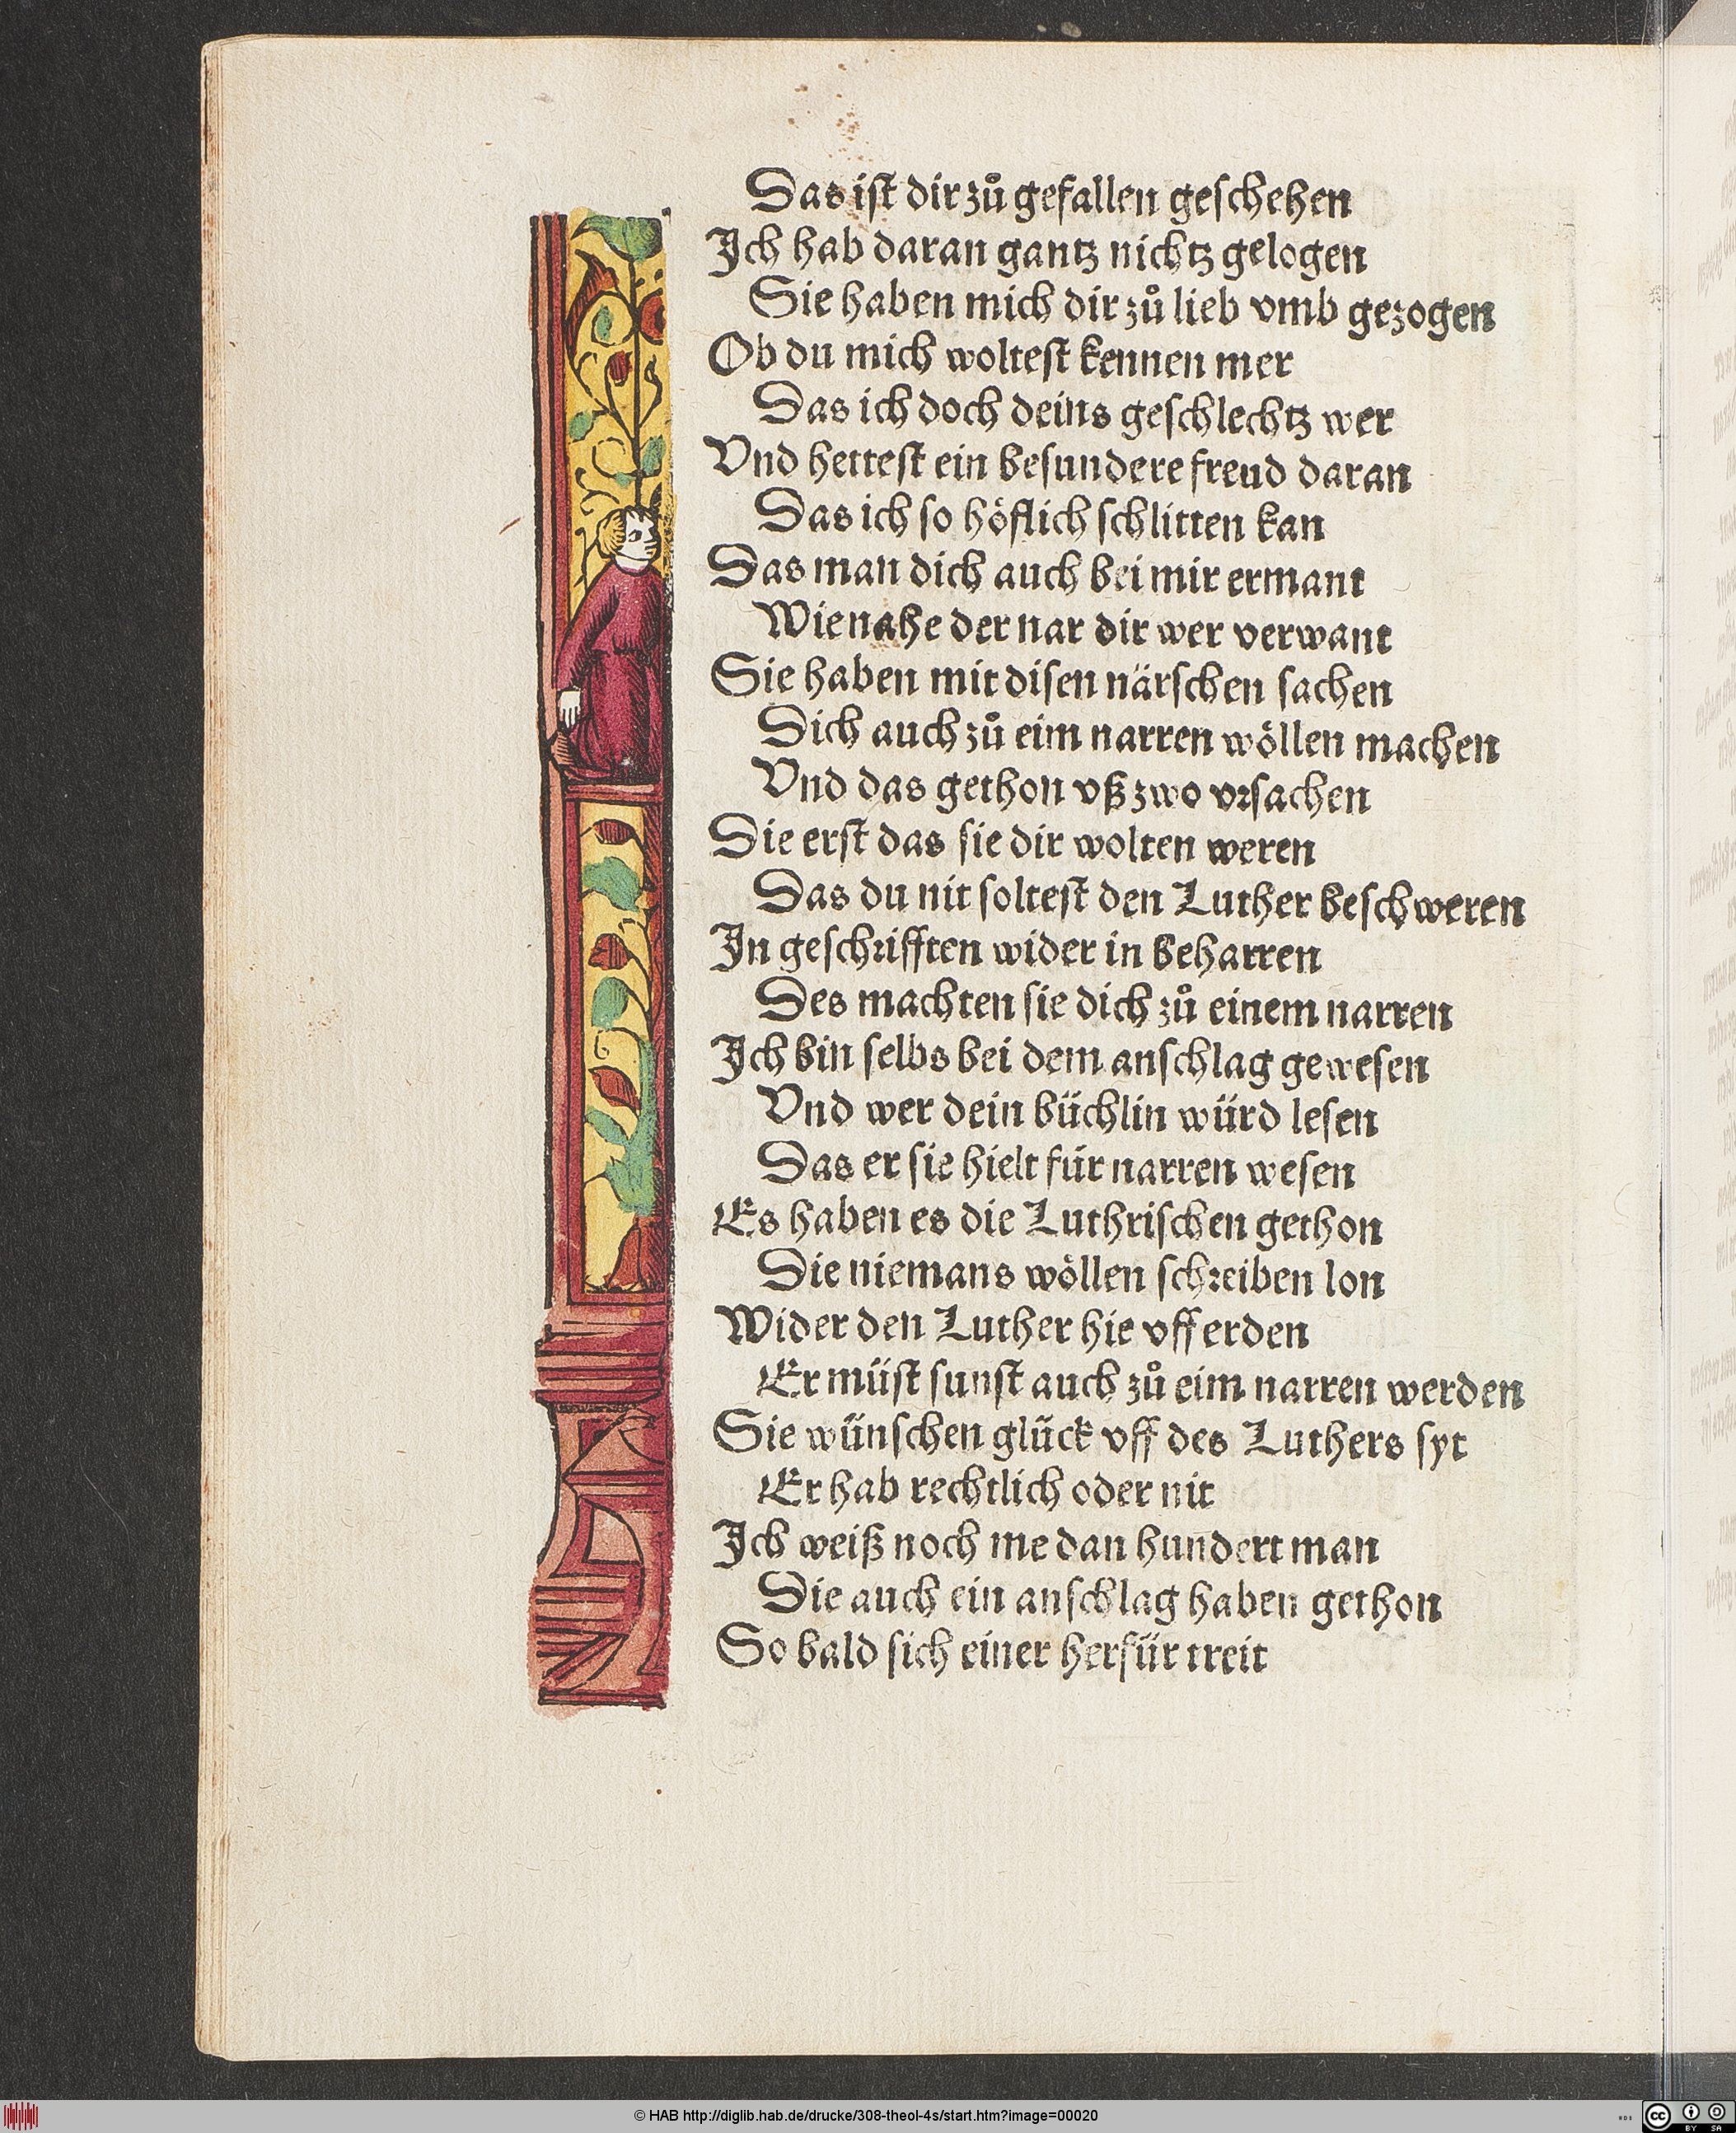 Das ist dir zů gefallen geschehen
Ich hab daran gantz nichtz gelogen
Sie haben mich dir zů lieb vmb gezogen
Ob du mich woltest kennen mer
Das ich doch deins geschlechtz wer
Vnd hettest ein besundere freud daran
Das ich so höflich schlitten kan
Das man dich auch bei mir ermant
Wie nahe der nar dir wer verwant
Sie haben mit disen närschen sachen
Dich auch zů eim narren wöllen machen
Vnd das gethon vß zwo vrsachen
Die erst das sie dir wolten weren
Das du nit soltest den Luther beschweren
In geschrifften wider in beharren
Des machten sie dich zů einem narren
Ich bin selbs bei dem anschlag gewesen
Vnd wer dein büchlin würd lesen
Das er sie hielt für narren wesen
Es haben es die Luthrischen gethon
Die niemans wöllen schreiben lon
Wider den Luther hie vff erden
Er müst sunst auch zů eim narren werden
Sie wünschen glück vff des Luthers syt
Er hab rechtlich oder nit
Ich weiß noch me dan hundert man
Die auch ein anschlag haben gethon
So bald sich einer herfür treit
© HAB http://diglib.hab.de/drucke/308-theol-4s/start.htm?image=00020
cc BY SA